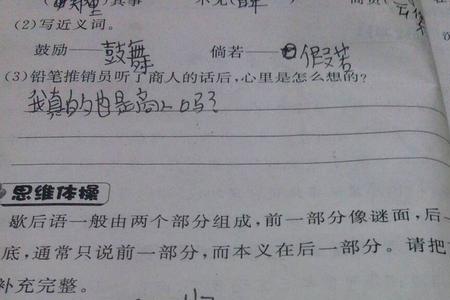 其事 不见
(2)写近义词。
鼓励——鼓舞 倘若——假若
(3)铅笔推销员听了商人的话后,心里是怎么想的?
我真的也是商人吗?
思维体操
歇后语一般由两个部分组成,前一部分像谜面,后一
底,通常只说前一部分,而本义在后一部分。请把
补充完整。